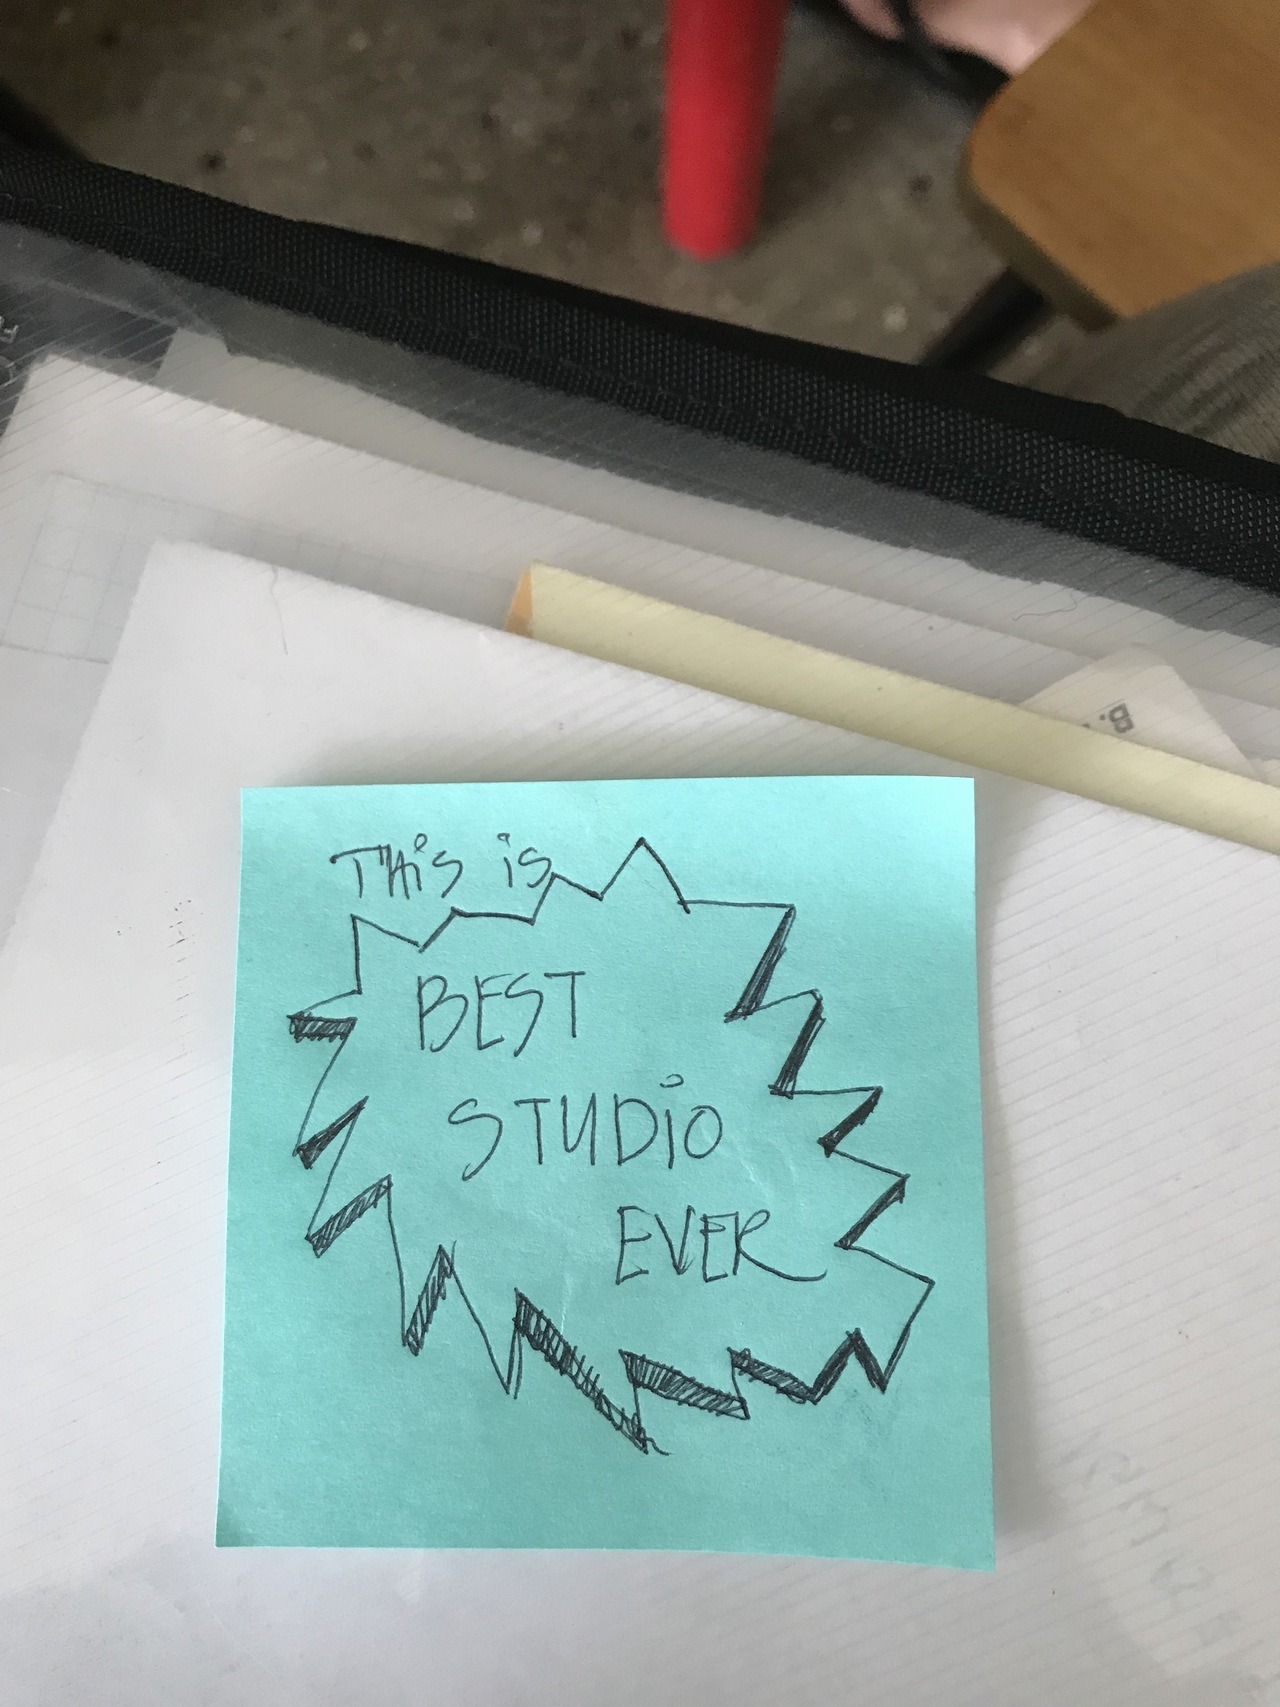 THiS iS
BEST
STUDiO
EVER
B.